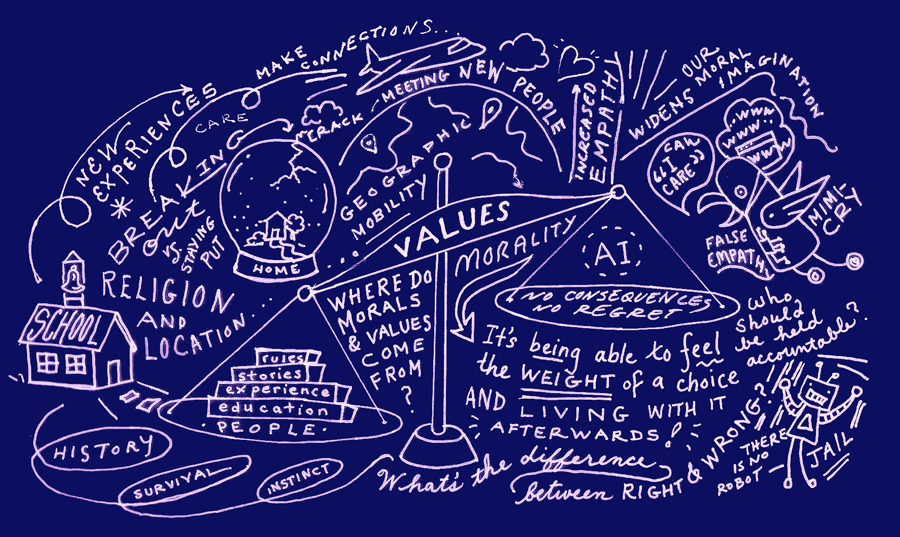 MAKE CONNECTIONS...
NEW
EXPERIENCES
CARE
BREAKING
out
vs
STAYING
PUT
CRACK
HOME
MEETING NEW PEOPLE
GEOGRAPHIC
MOBILITY
INCREASED
EMPATHY
OUR
WIDENS MORAL
IMAGINATION
"CAN
I
CARE"
..WWW..
WWW..
WWW
MIMI-
CRY
FALSE
EMPATHY
SCHOOL
RELIGION
AND
LOCATION...
...VALUES
MORALITY
WHERE DO
MORALS
& VALUES
COME
FROM
?
AI
NO CONSEQUENCES
NO REGRET
rules
stories
experience
education
·PEOPLE·
HISTORY
SURVIVAL
INSTINCT
It's being able to feel
the WEIGHT of a choice
AND LIVING WITH IT
AFTERWARDS!
who
should
be held
accountable?
What's the difference
between RIGHT & WRONG?
THERE
IS NO
ROBOT
JAIL